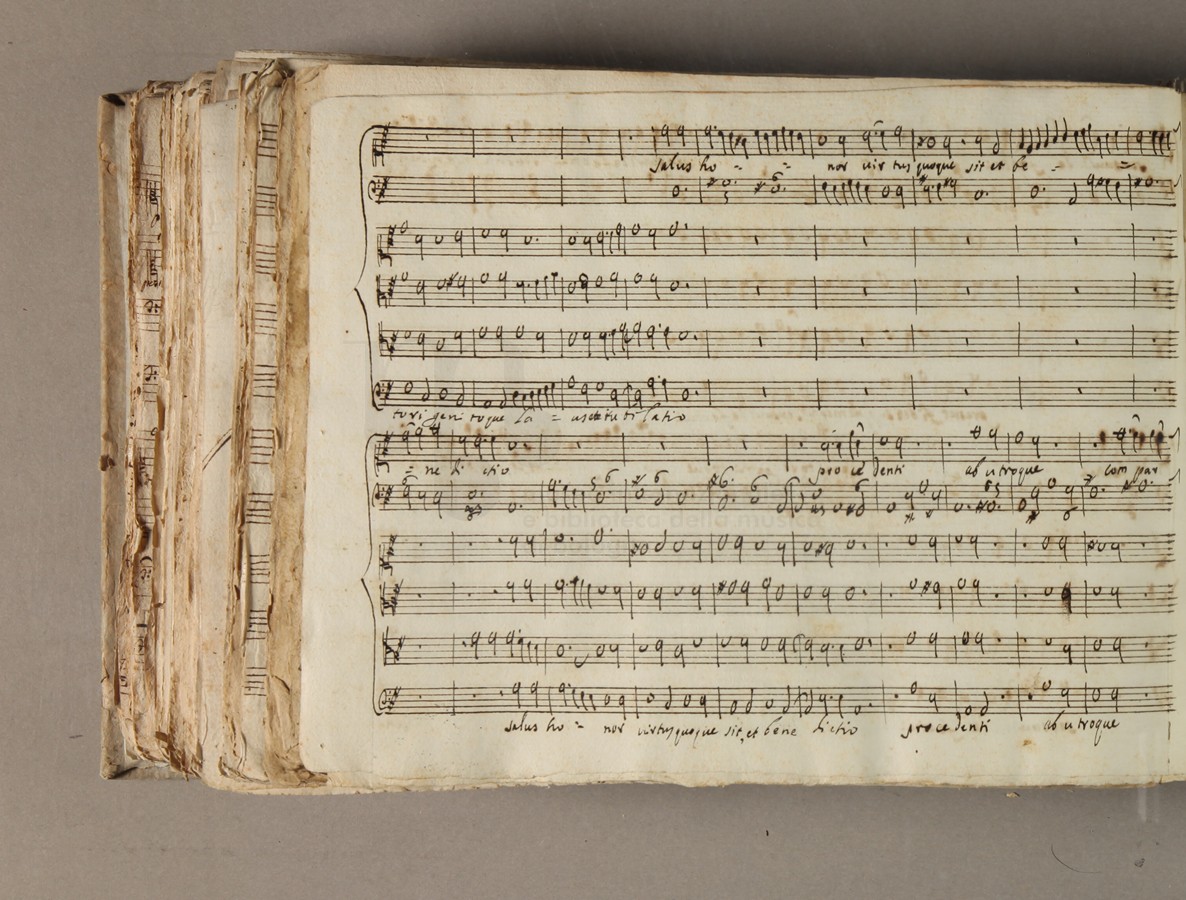 salus ho = = nor virtus quoque sit et be = =
tori geni toque la = us et iu bi latio
= ne di ctio pro ce denti ab utroque com par
e biblioteca della musica
salus ho = nor virtus quoque sit, et bene dictio proce denti ab utroque